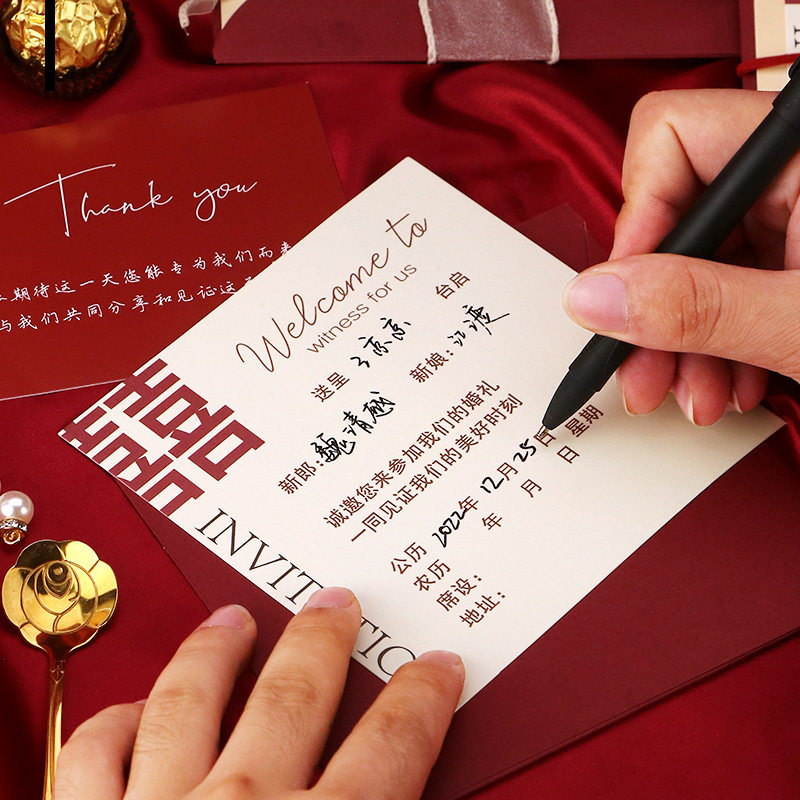 Thank you
期待这一天您能专为我们而来
与我们共同分享和见证这
Welcome to
witness for us
送呈 京京 台启
新郎：魏清越 新娘：江渡
诚邀您来参加我们的婚礼
一同见证我们的美好时刻
公历 2022年 12月 25日 星期
农历 年 月 日
席设：
地址：
囍
INVIT TIO